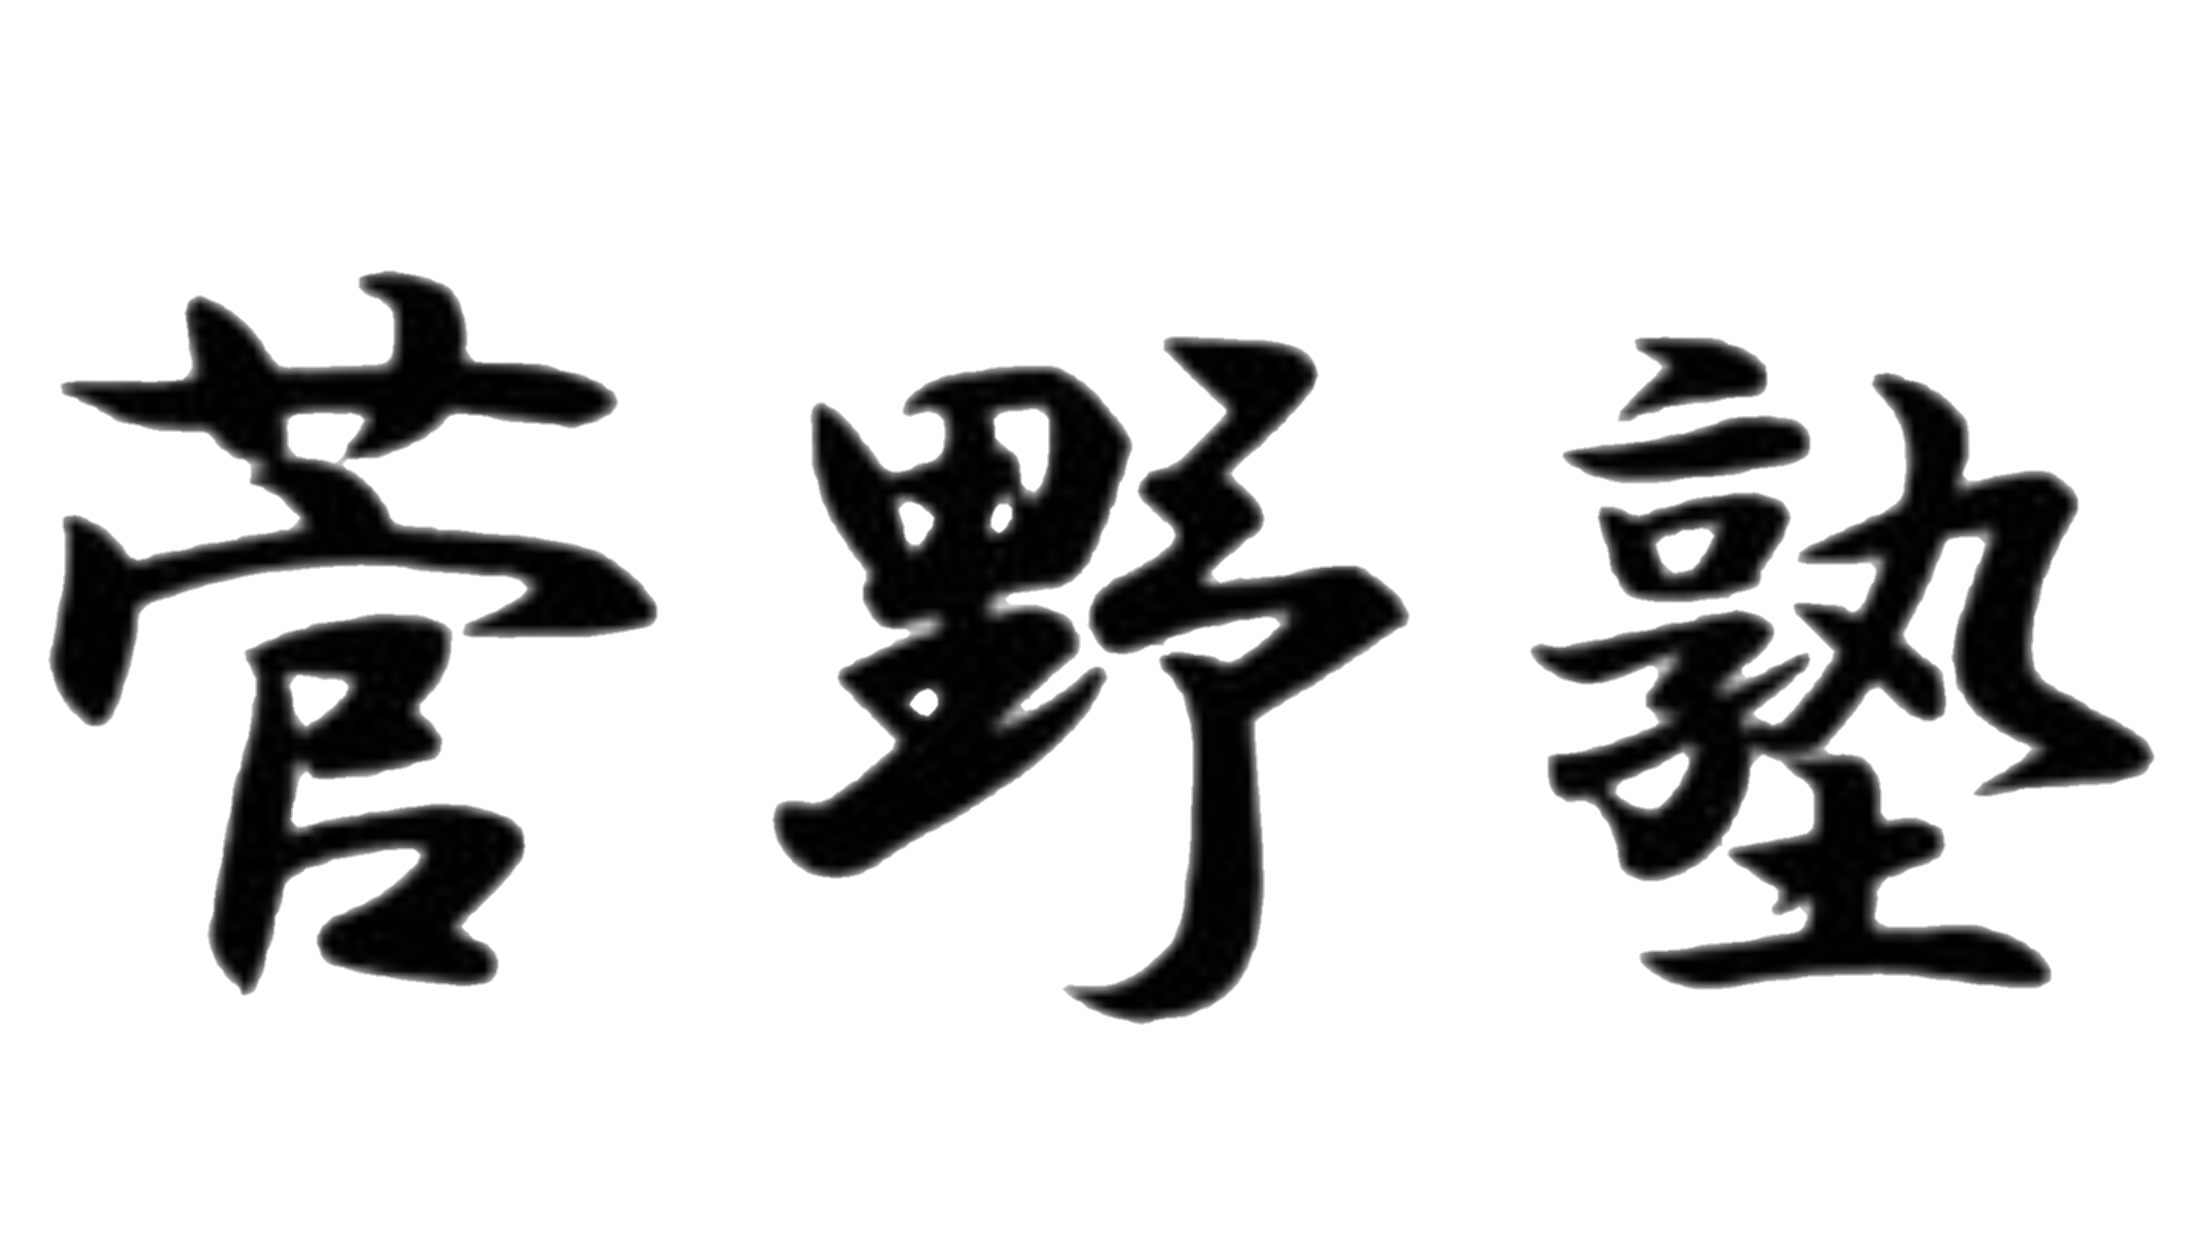 菅野塾